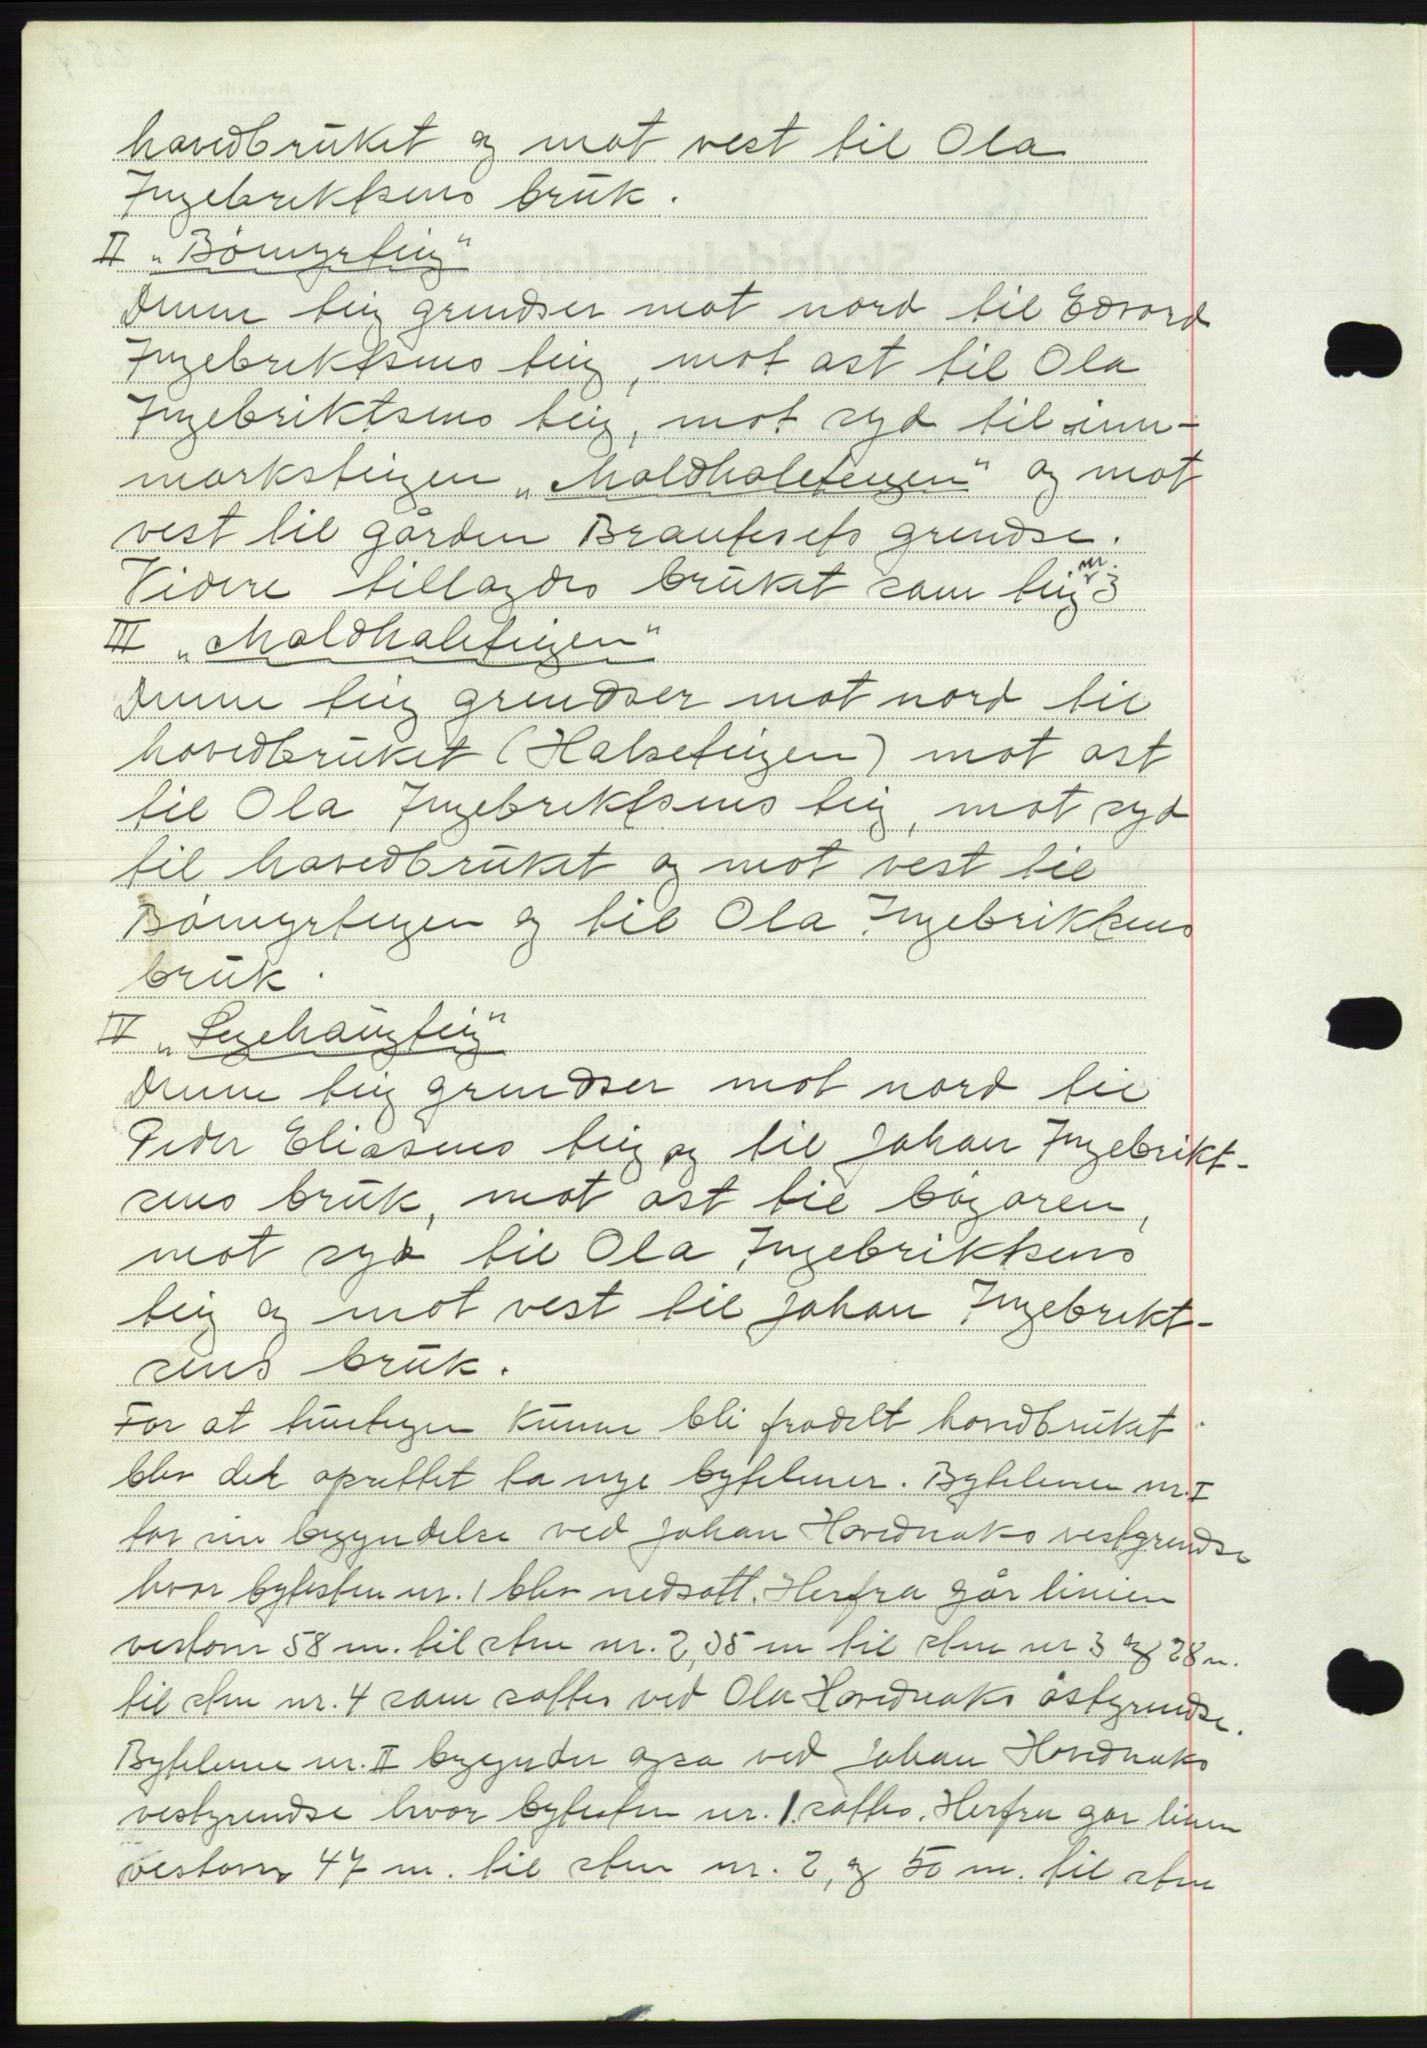 hovedbruket og mot vest til Ola
Ingebriktsens bruk.
II „Bömyrteig"
Denne teig grendser mot nord til Edvard
Ingebriktsens teig, mot öst til Ola
Ingebriktsens teig, mot syd til inn-
marksteigen „Moldhaleteigen" og mot
vest til gården Brautesets grendse.
Videre tillagdes bruket som teig nr. 3
III „Moldhaleteigen"
Denne teig grendser mot nord til
hovedbruket (Halseteigen) mot öst
til Ola Ingebriktsens teig, mot syd
til hovedbruket og mot vest til
Bömyrteigen og til Ola Ingebriktsens
bruk.
IV „Legehaugteig"
Denne teig grendser mot nord til
Peder Eliasens teig og til Johan Ingebrikt-
sens bruk, mot öst til bögaren,
mot syd til Ola Ingebriktsens
teig og mot vest til Johan Ingebrikt-
sens bruk.
For at tunteigen kunne bli fradelt hovedbruket
blev det oprettet to nye bytelinier. Bytelinien nr. I
tar sin begyndelse ved Johan Hovdenaks vestgrendse
hvor bytesten nr. 1 blev nedsatt. Herfra går linien
vestover 58 m. til sten nr. 2, 35 m til sten nr 3 og 28 m.
til sten nr. 4 som sattes ved Ola Hovdenaks östgrendse.
Bytelinie nr. II begynder også ved Johan Hovdenaks
vestgrendse hvor bytesten nr. 1. sattes. Herfra går linien
vestover 47 m. til sten nr. 2, og 50 m. til sten